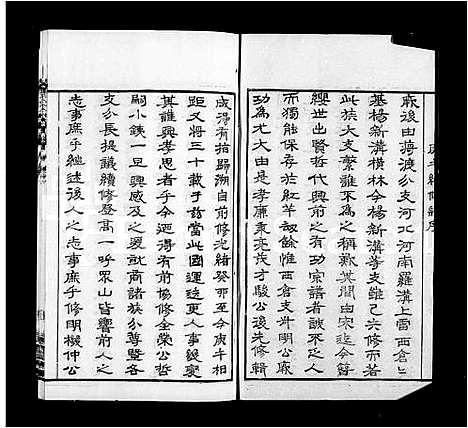 庚午續修譜序
厥後由蔣渡分支河北河南羅溝上雪西倉
基楊新溝橫林今楊新溝等支雖已六修而若
此族大支繁誰不為之稱歟其間由宋迄今簪
纓世出賢哲代興前之有功宗譜者誠不乏人
而獨能保存於紅羊劫餘惟西倉支升明公厥
功為尤大由是孝廉秉亮茂才駿公後先修輯
成得有指歸溯自前修光緒癸卯至今庚午相
距又將三十載于茲當此國運迭更人事級變
其誰興孝思者乎今迺得有前協修金榮公哲
嗣小銕一旦興感及之爰就商諸族分尊暨各
支分長提議續修登高一呼眾山皆響前人之
志事庶乎繼述後人之志事庶乎修明機仲公